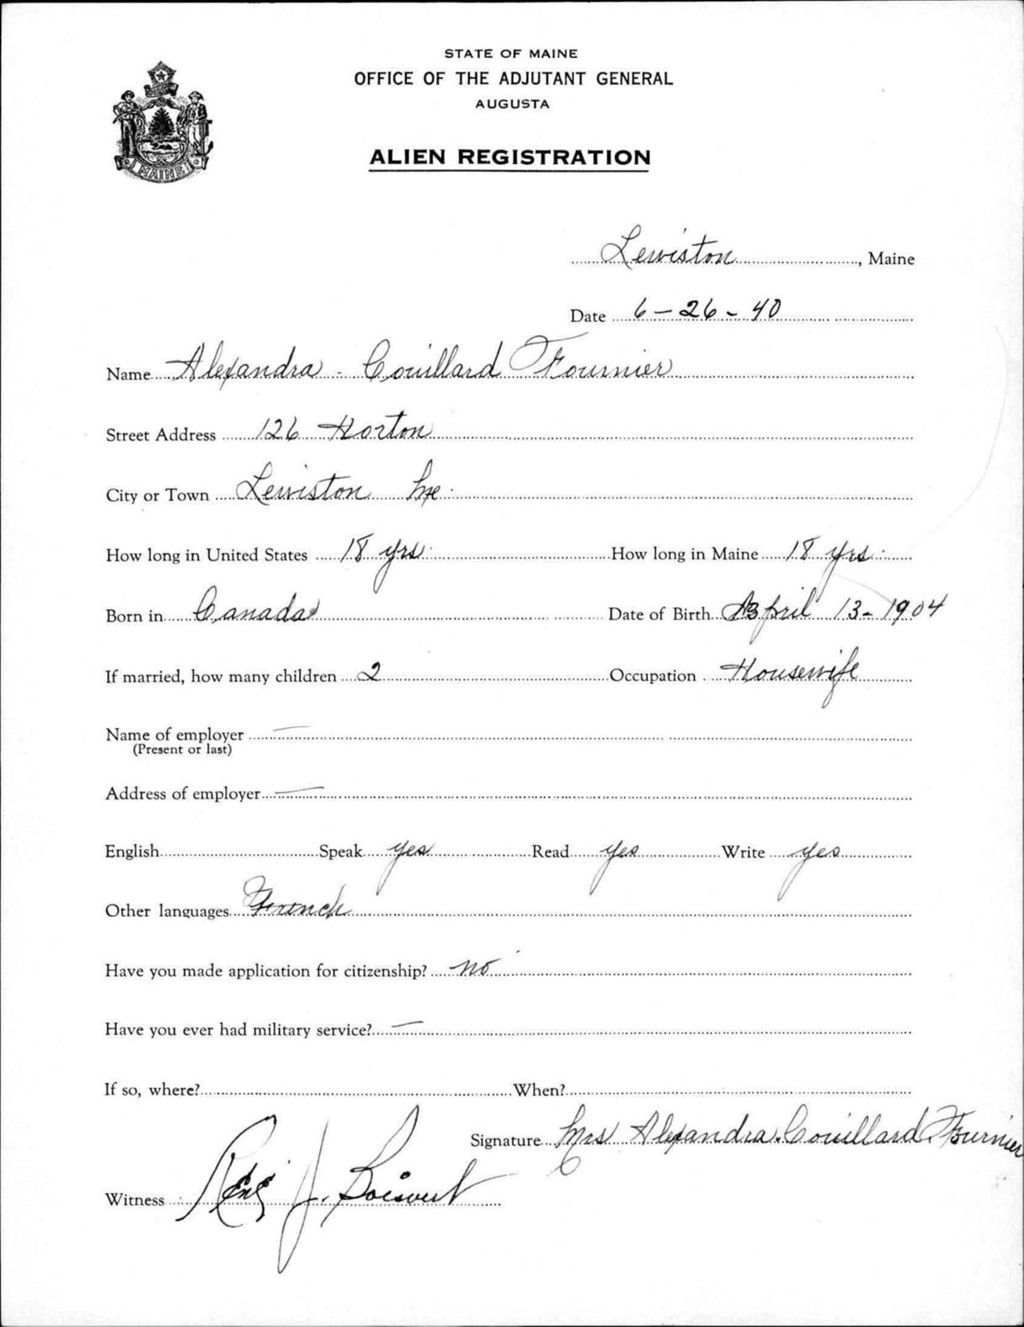 STATE OF MAINE
OFFICE OF THE ADJUTANT GENERAL
AUGUSTA
ALIEN REGISTRATION
MAINE
Lewiston, Maine
Date 6-26-40
Name Alexandra - Couillard Fournier
Street Address 126 Horton
City or Town Lewiston Me.
How long in United States 18 yrs. How long in Maine 18 yrs.
Born in Canada Date of Birth April 13-1904
If married, how many children 2 Occupation Housewife
Name of employer —
(Present or last)
Address of employer —
English Speak yes Read yes Write yes
Other languages French
Have you made application for citizenship? no
Have you ever had military service? —
If so, where? When?
Signature Mrs Alexandra Couillard Fournier
Witness René J. Boisvert